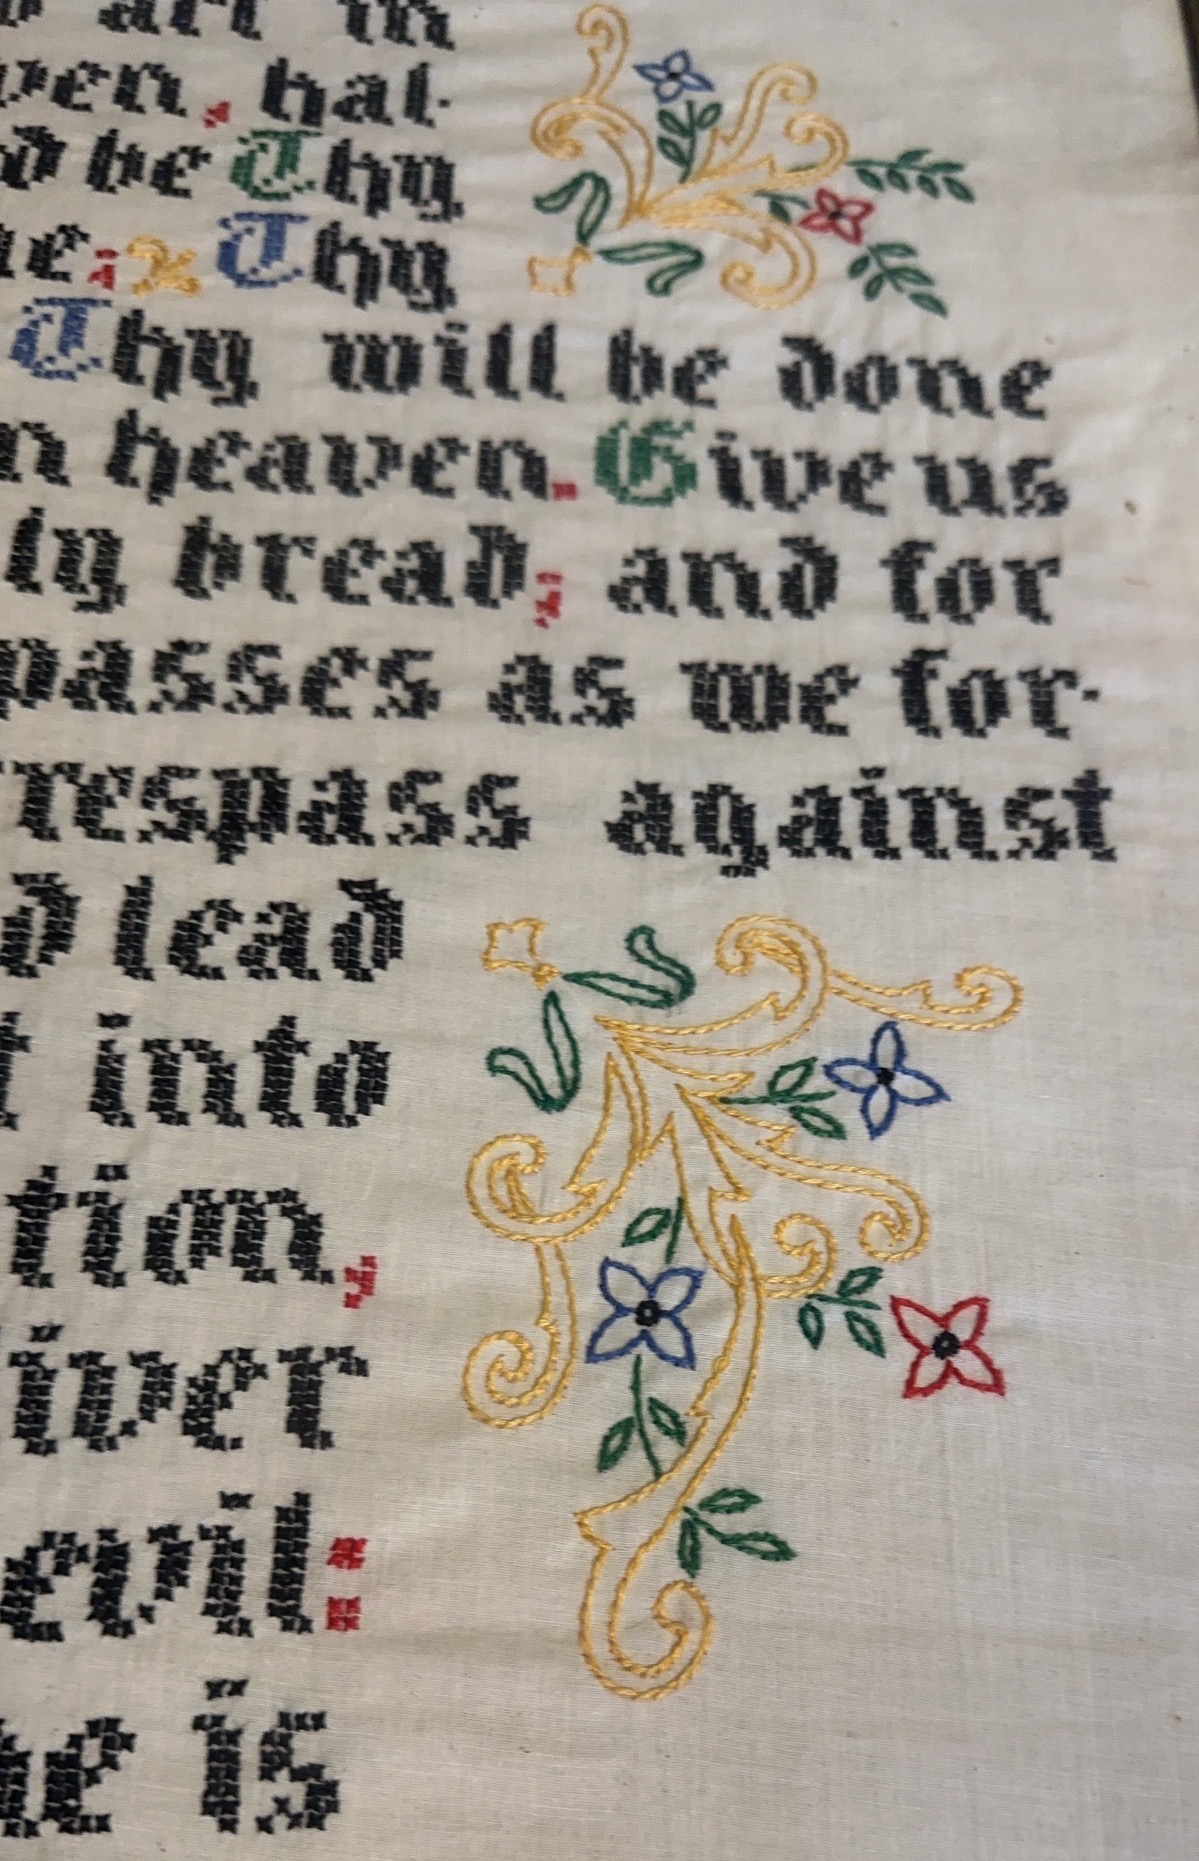 art in
ven, hal-
be Thy
e; Thy
Thy will be done
n heaven. Give us
ly bread; and for
passes as we for-
respass against
d lead
t into
tion,
iver
evil:
he is